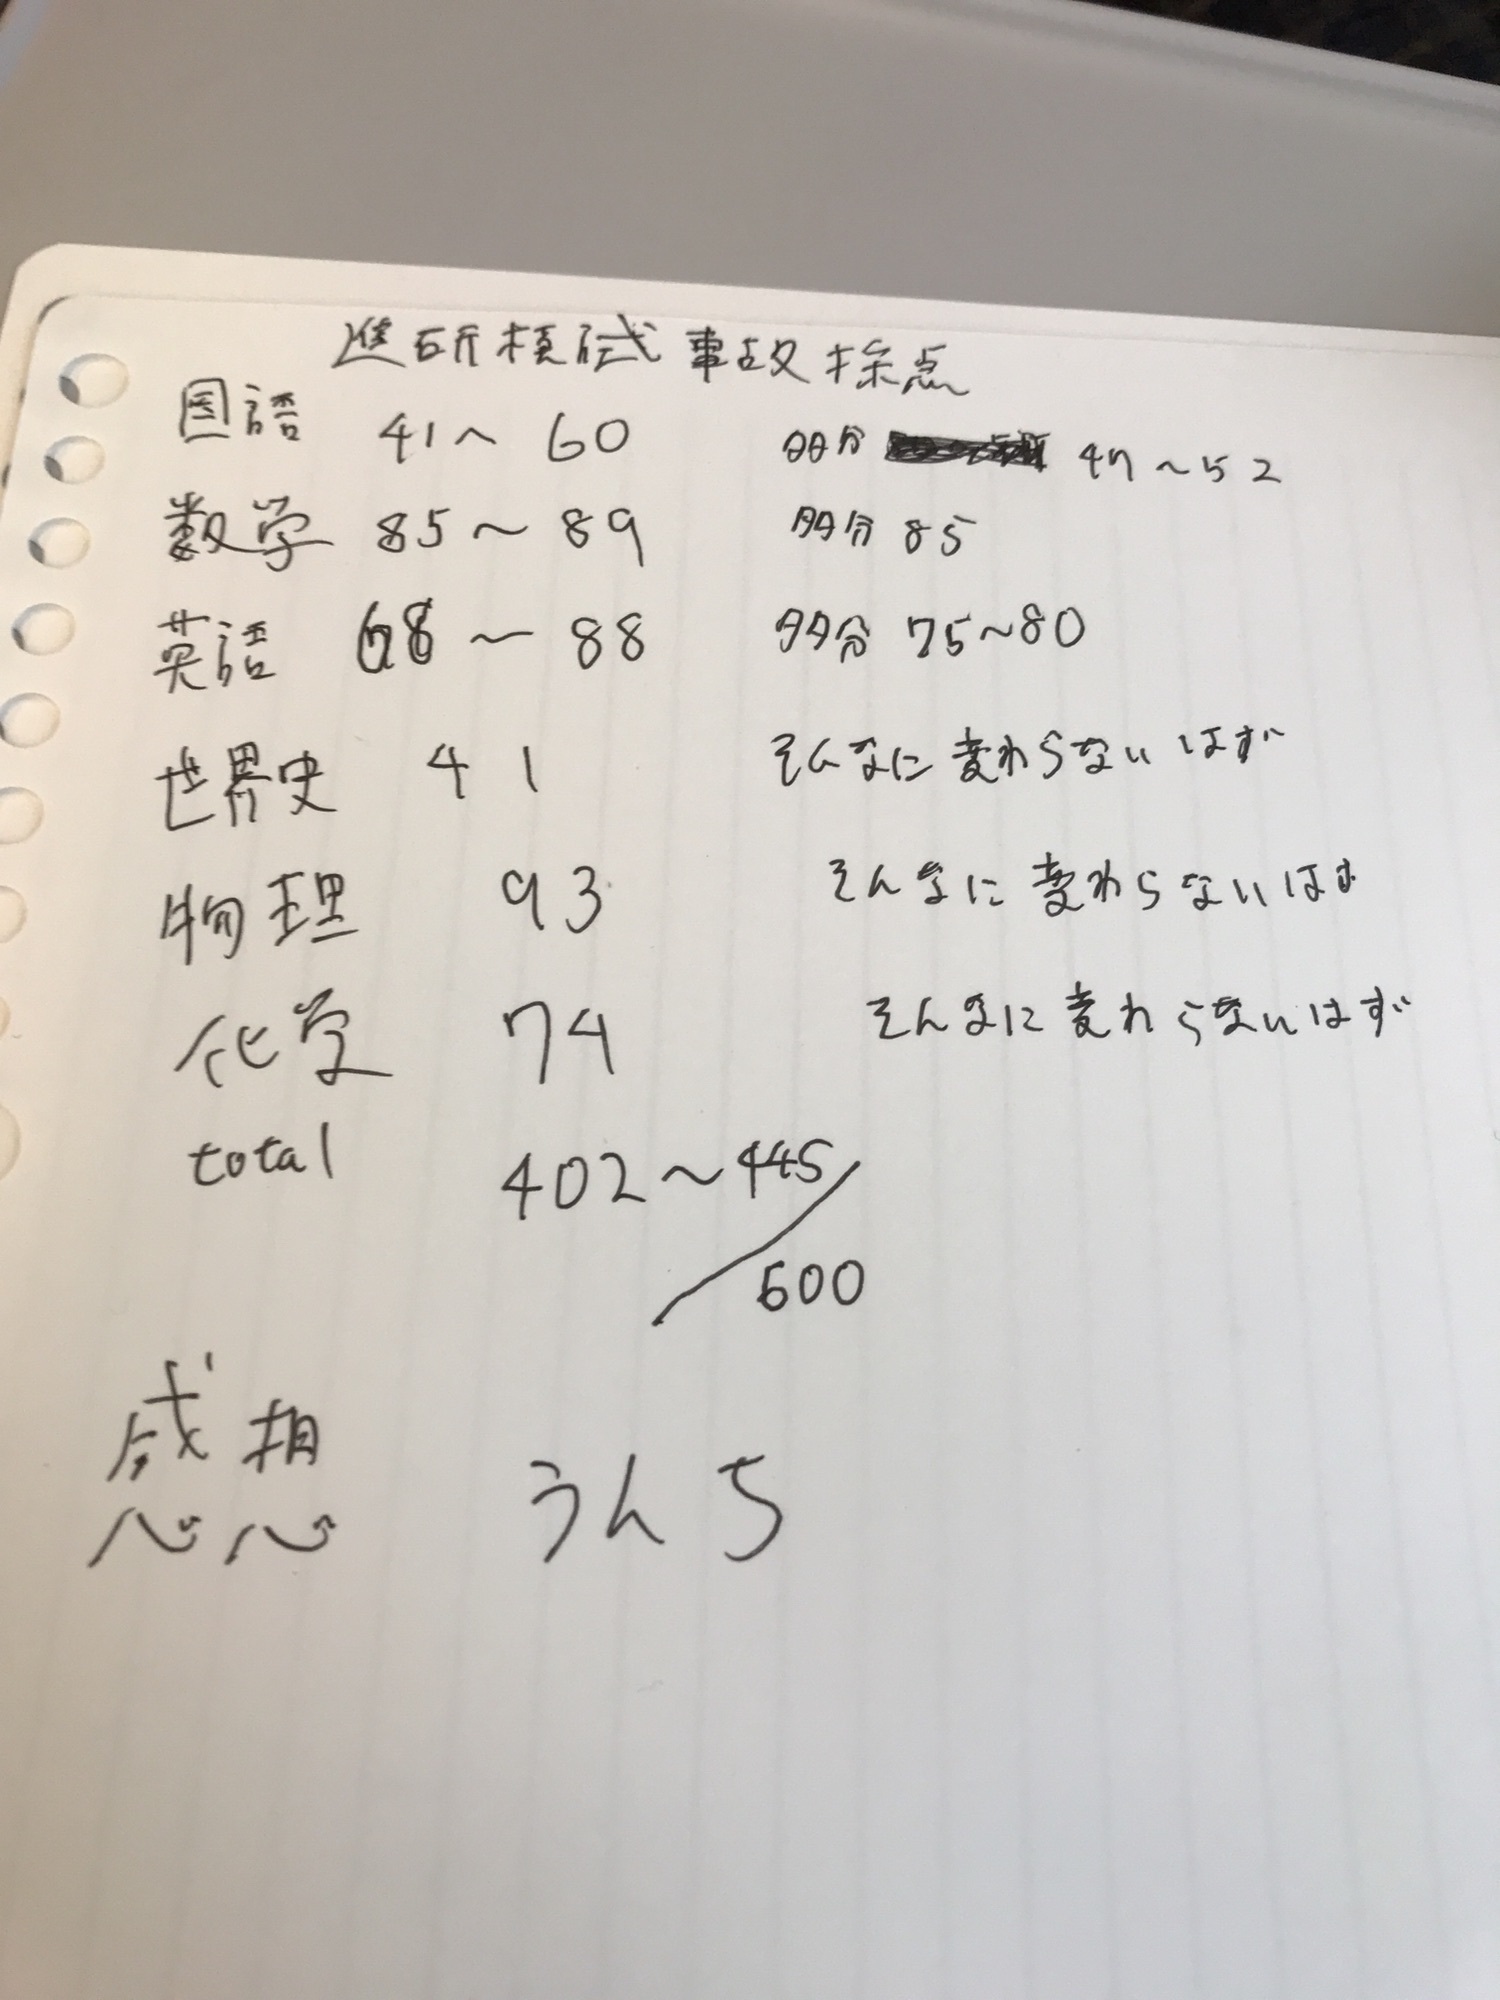 進研模試 事故採点
国語 41〜60 多分 47〜52
数学 85〜89 多分 85
英語 68〜88 多分 75〜80
世界史 41 そんなに変わらないはず
物理 93 そんなに変わらないはず
化学 74 そんなに変わらないはず
total 402〜445
/600
感想 うんち